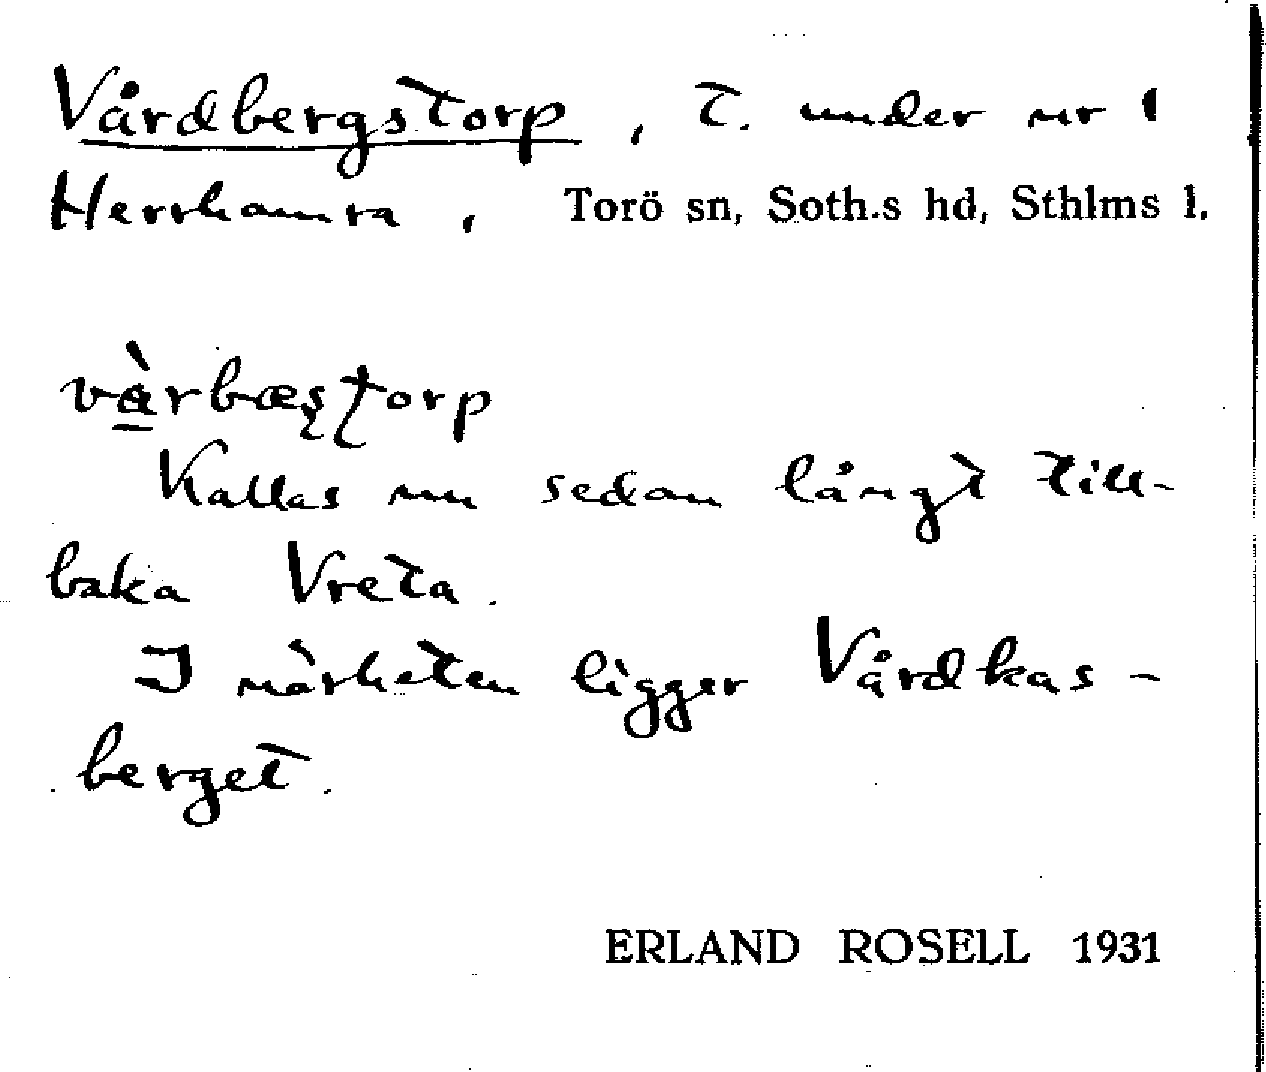 Vårdbergstorp, T. under nr 1
Herrhamra, Torö sn, Soth.s hd, Sthlms l.
và̱rbæʂʈorp
Kallas nu sedan långt till-
baka Vreta.
I närheten ligger Vårdkas-
berget.
ERLAND ROSELL 1931